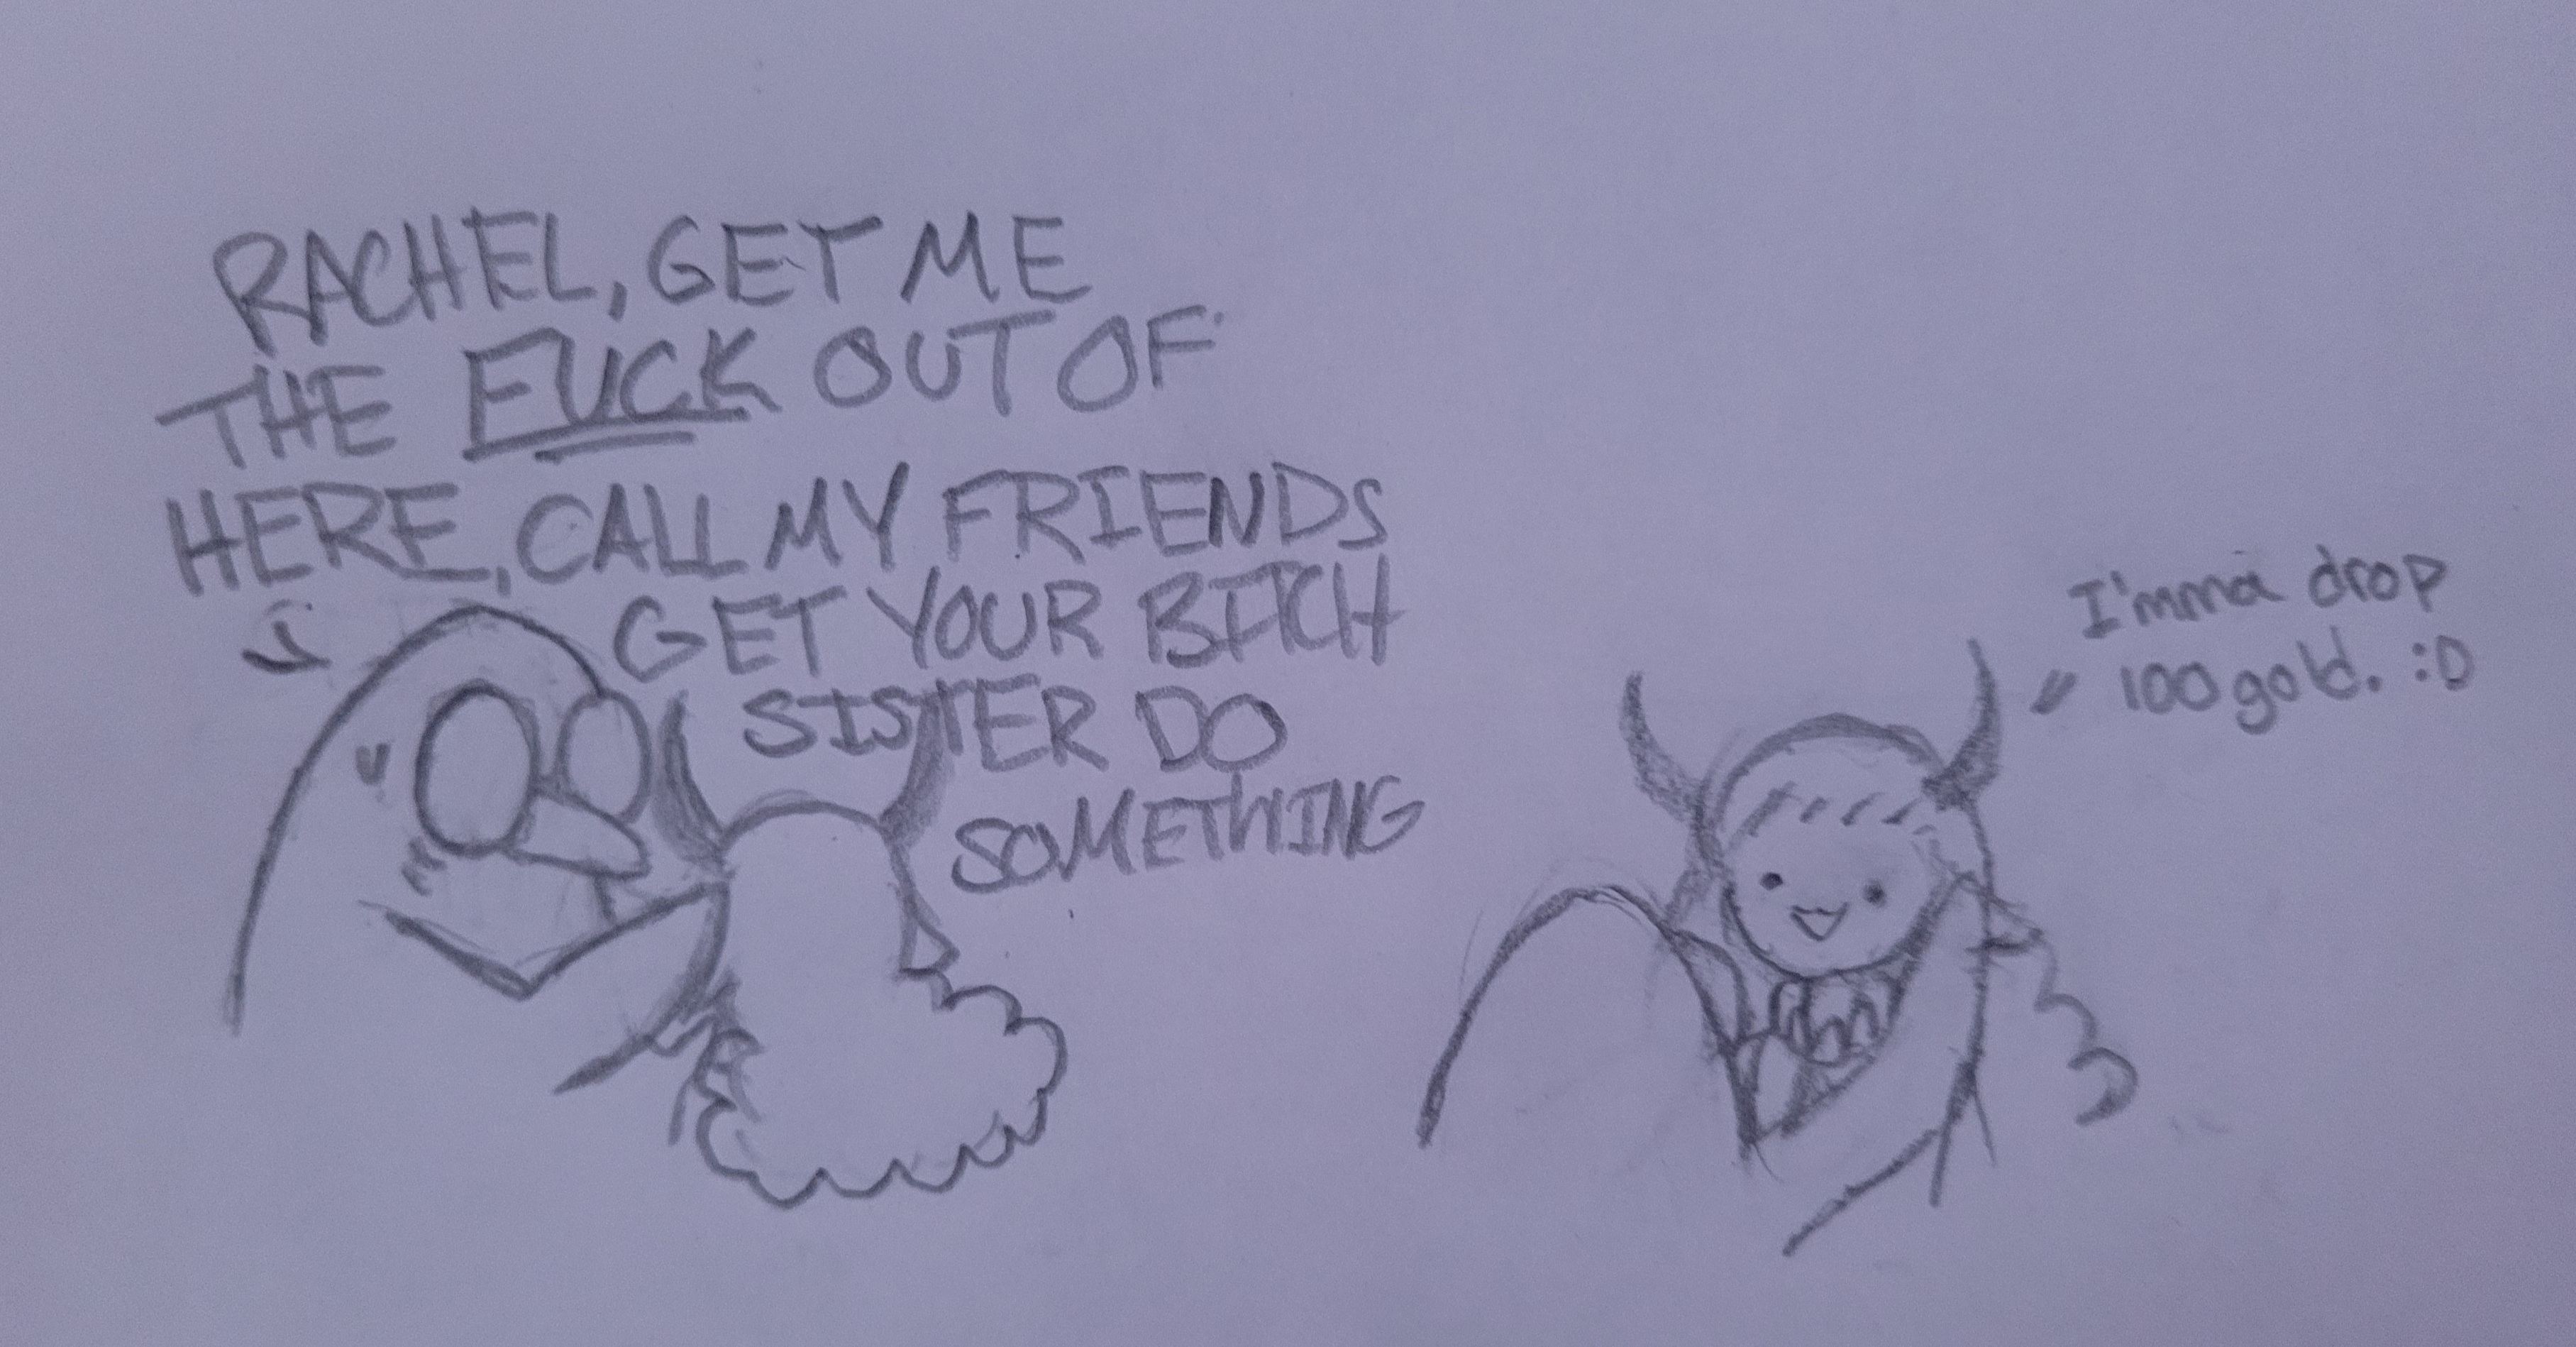 RACHEL, GET ME
THE FUCK OUT OF
HERE, CALL MY FRIENDS
GET YOUR BITCH
SISTER DO
SOMETHING
I'mma drop
100 gold. :D